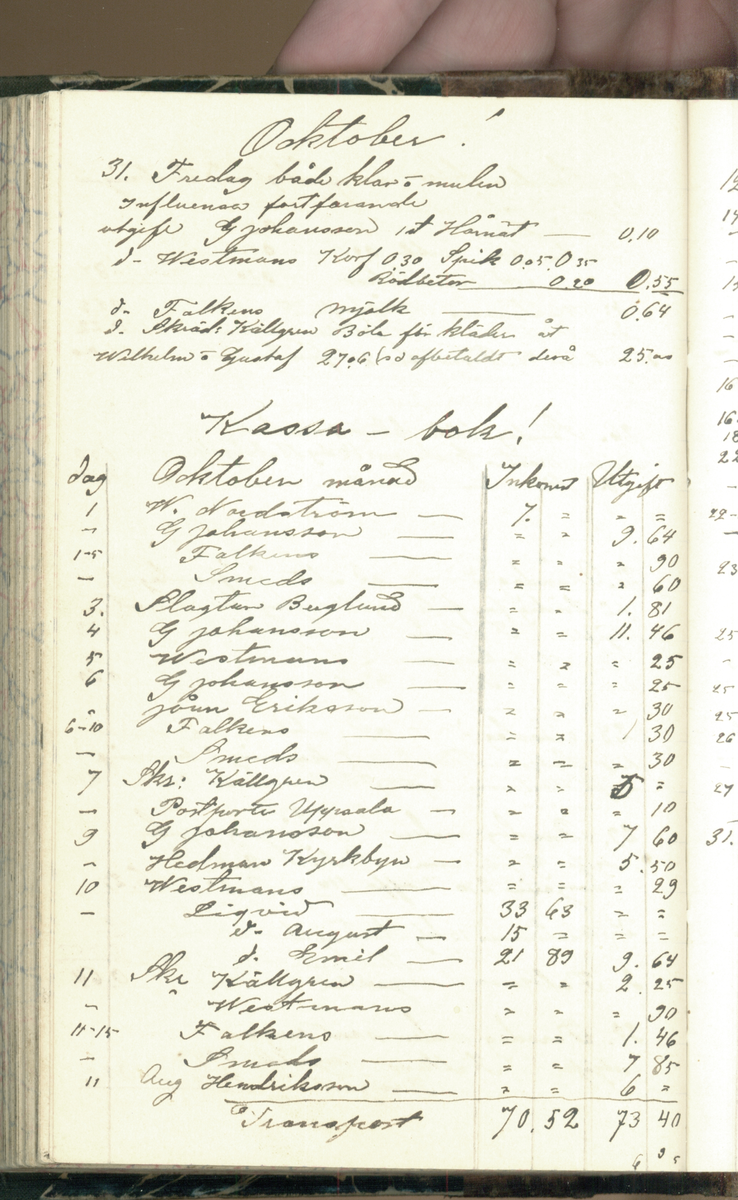 Ocktober!
31. Fredag både klar o mulen
Influensa fortfarande
utgift G Johansson 1st Hårnät — 0.10
d. Westmans Korf 0 30 Spik 0.05. 0 35
Rödbetor — 0.20 0.55
d. Falkens mjölk — 0.64
d. Skräd: Källgren för kläder åt
Wilhelm o Gustaf afbetaldt derå 25.00
Kassa - bok!
Dag Ocktober månad Inkomst Utgift
1 W. Nordström — 7. = = =
" G Johansson — = = 9. 64
1-5 Falkens — = = = 90
" Smeds — = = = 60
3. Slagtar Berglund — = = 1. 81
4 G Johansson — = = 11. 46
5 Westmans — = = = 25
6 G Johansson — = = = 25
" Eriksson — = = = 30
6-10 Falkens — = = 1 30
" Smeds — = = = 30
7 Skr: Källgren — = = 5 =
" Postporto Uppsala — = = = 10
9 G Johansson — = = 7 60
" Hedman Kyrkbyn — = = 5. 50
10 Westmans — = = = 29
" Liqvid — 33 63 = =
d. August — 15 = = =
d. Emil — 21 89 9. 64
11 Skr Källgren — = = 2. 25
" Westmans = = = 90
11-15 Falkens — = = 1. 46
" Smeds — = = 7 85
11 Aug Hendriksson — = = 6 =
Transport 70. 52 73 40
12
16
16
18
22
22-
23
25
25
25
26
27
31.